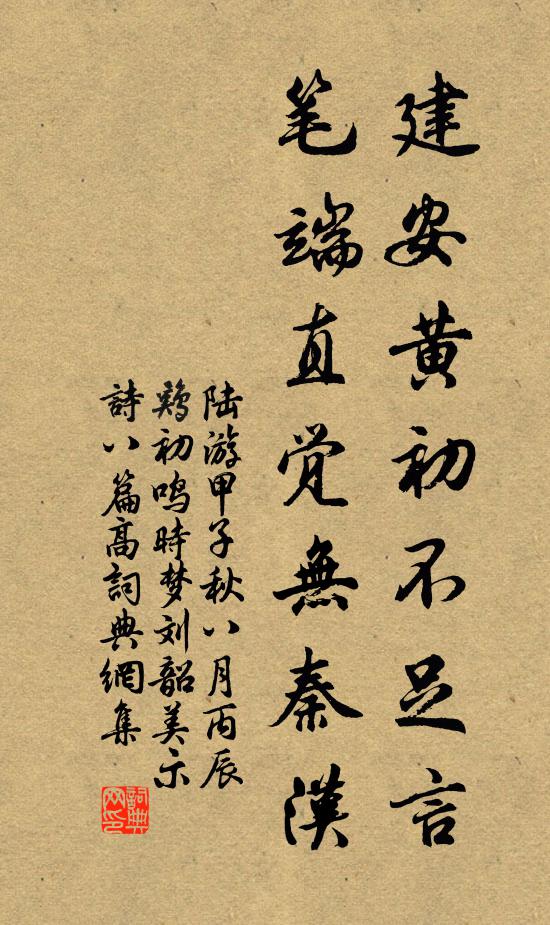 建安黄初不足言
笔端直觉無秦漢
陆游甲子秋八月丙辰
鸡初鸣時梦刘韶美示
詩八篇高詞典網集
詞典网印